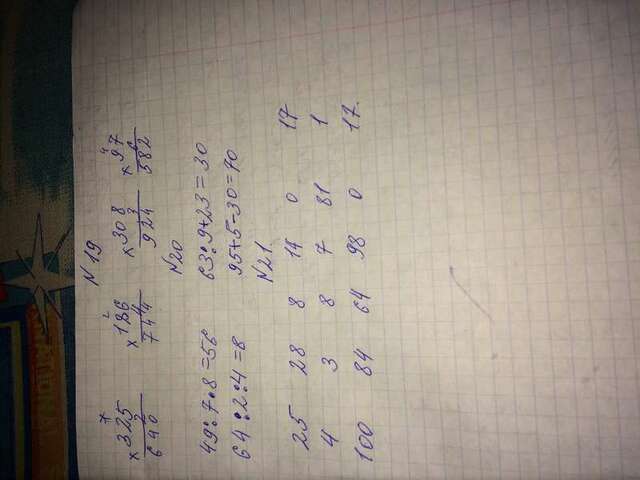 N 19
1 2 4
× 325 × 186 × 308 × 97
2 4 3 6
640 744 924 582
N20
49:7·8=56 63:9+23=30
64:2:4=8 95+5-30=70
N21.
25 28 8 14 0 17
4 3 8 7 81 1
100 84 64 98 0 17.